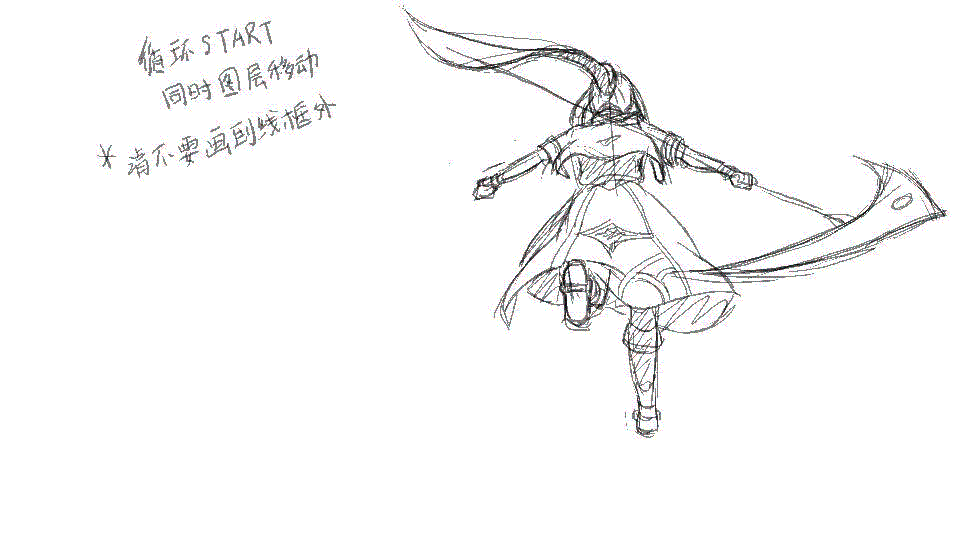 循环START
同时图层移动
* 请不要画到线框外